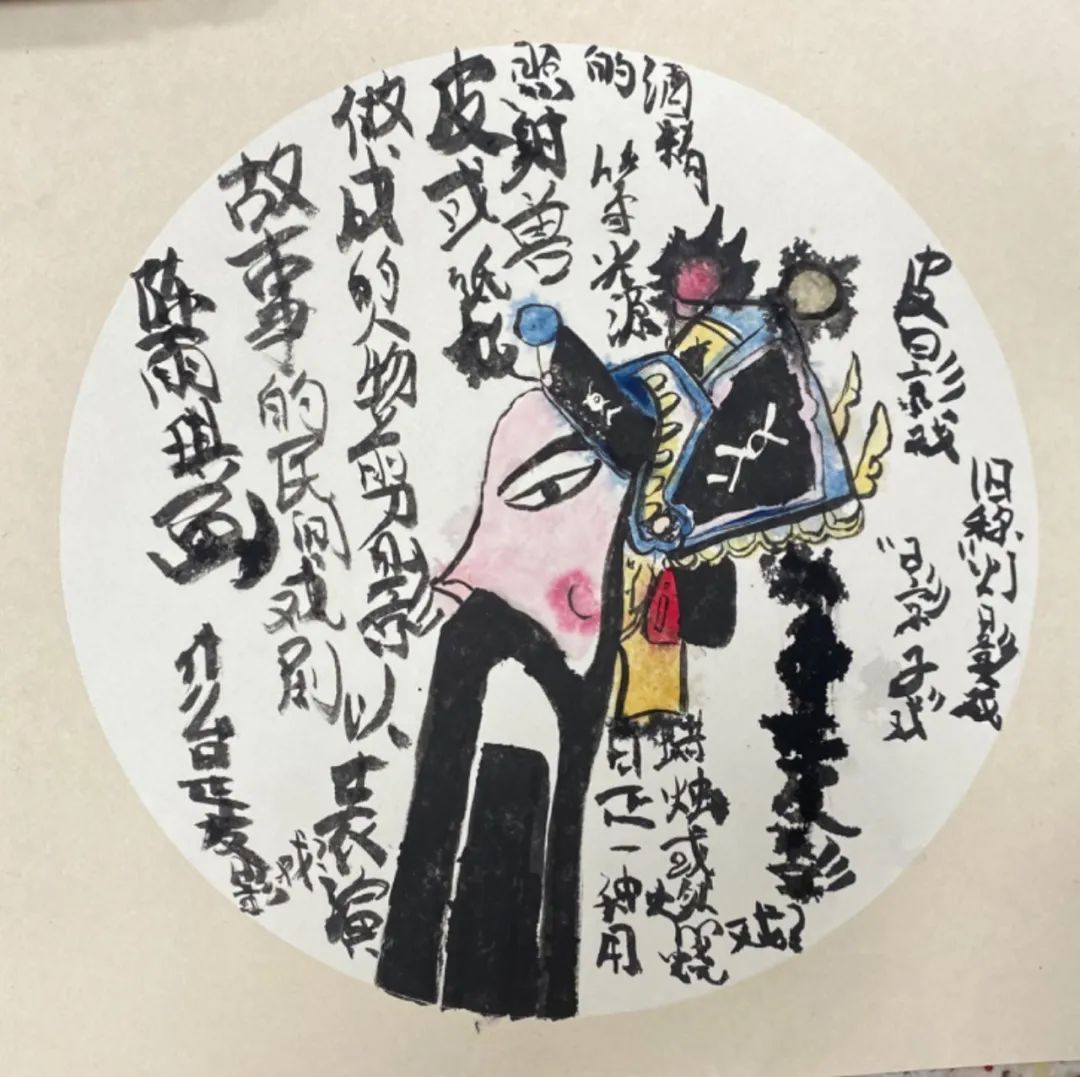 皮影戏
旧称“灯影戏
“影子戏”
影
戏
蜡烛或燃烧
是一种用
酒精
的
等光源
照射兽
皮或纸
做成的人物剪影以表演
故事的民间戏剧
陈雨琪画
皮影
戏